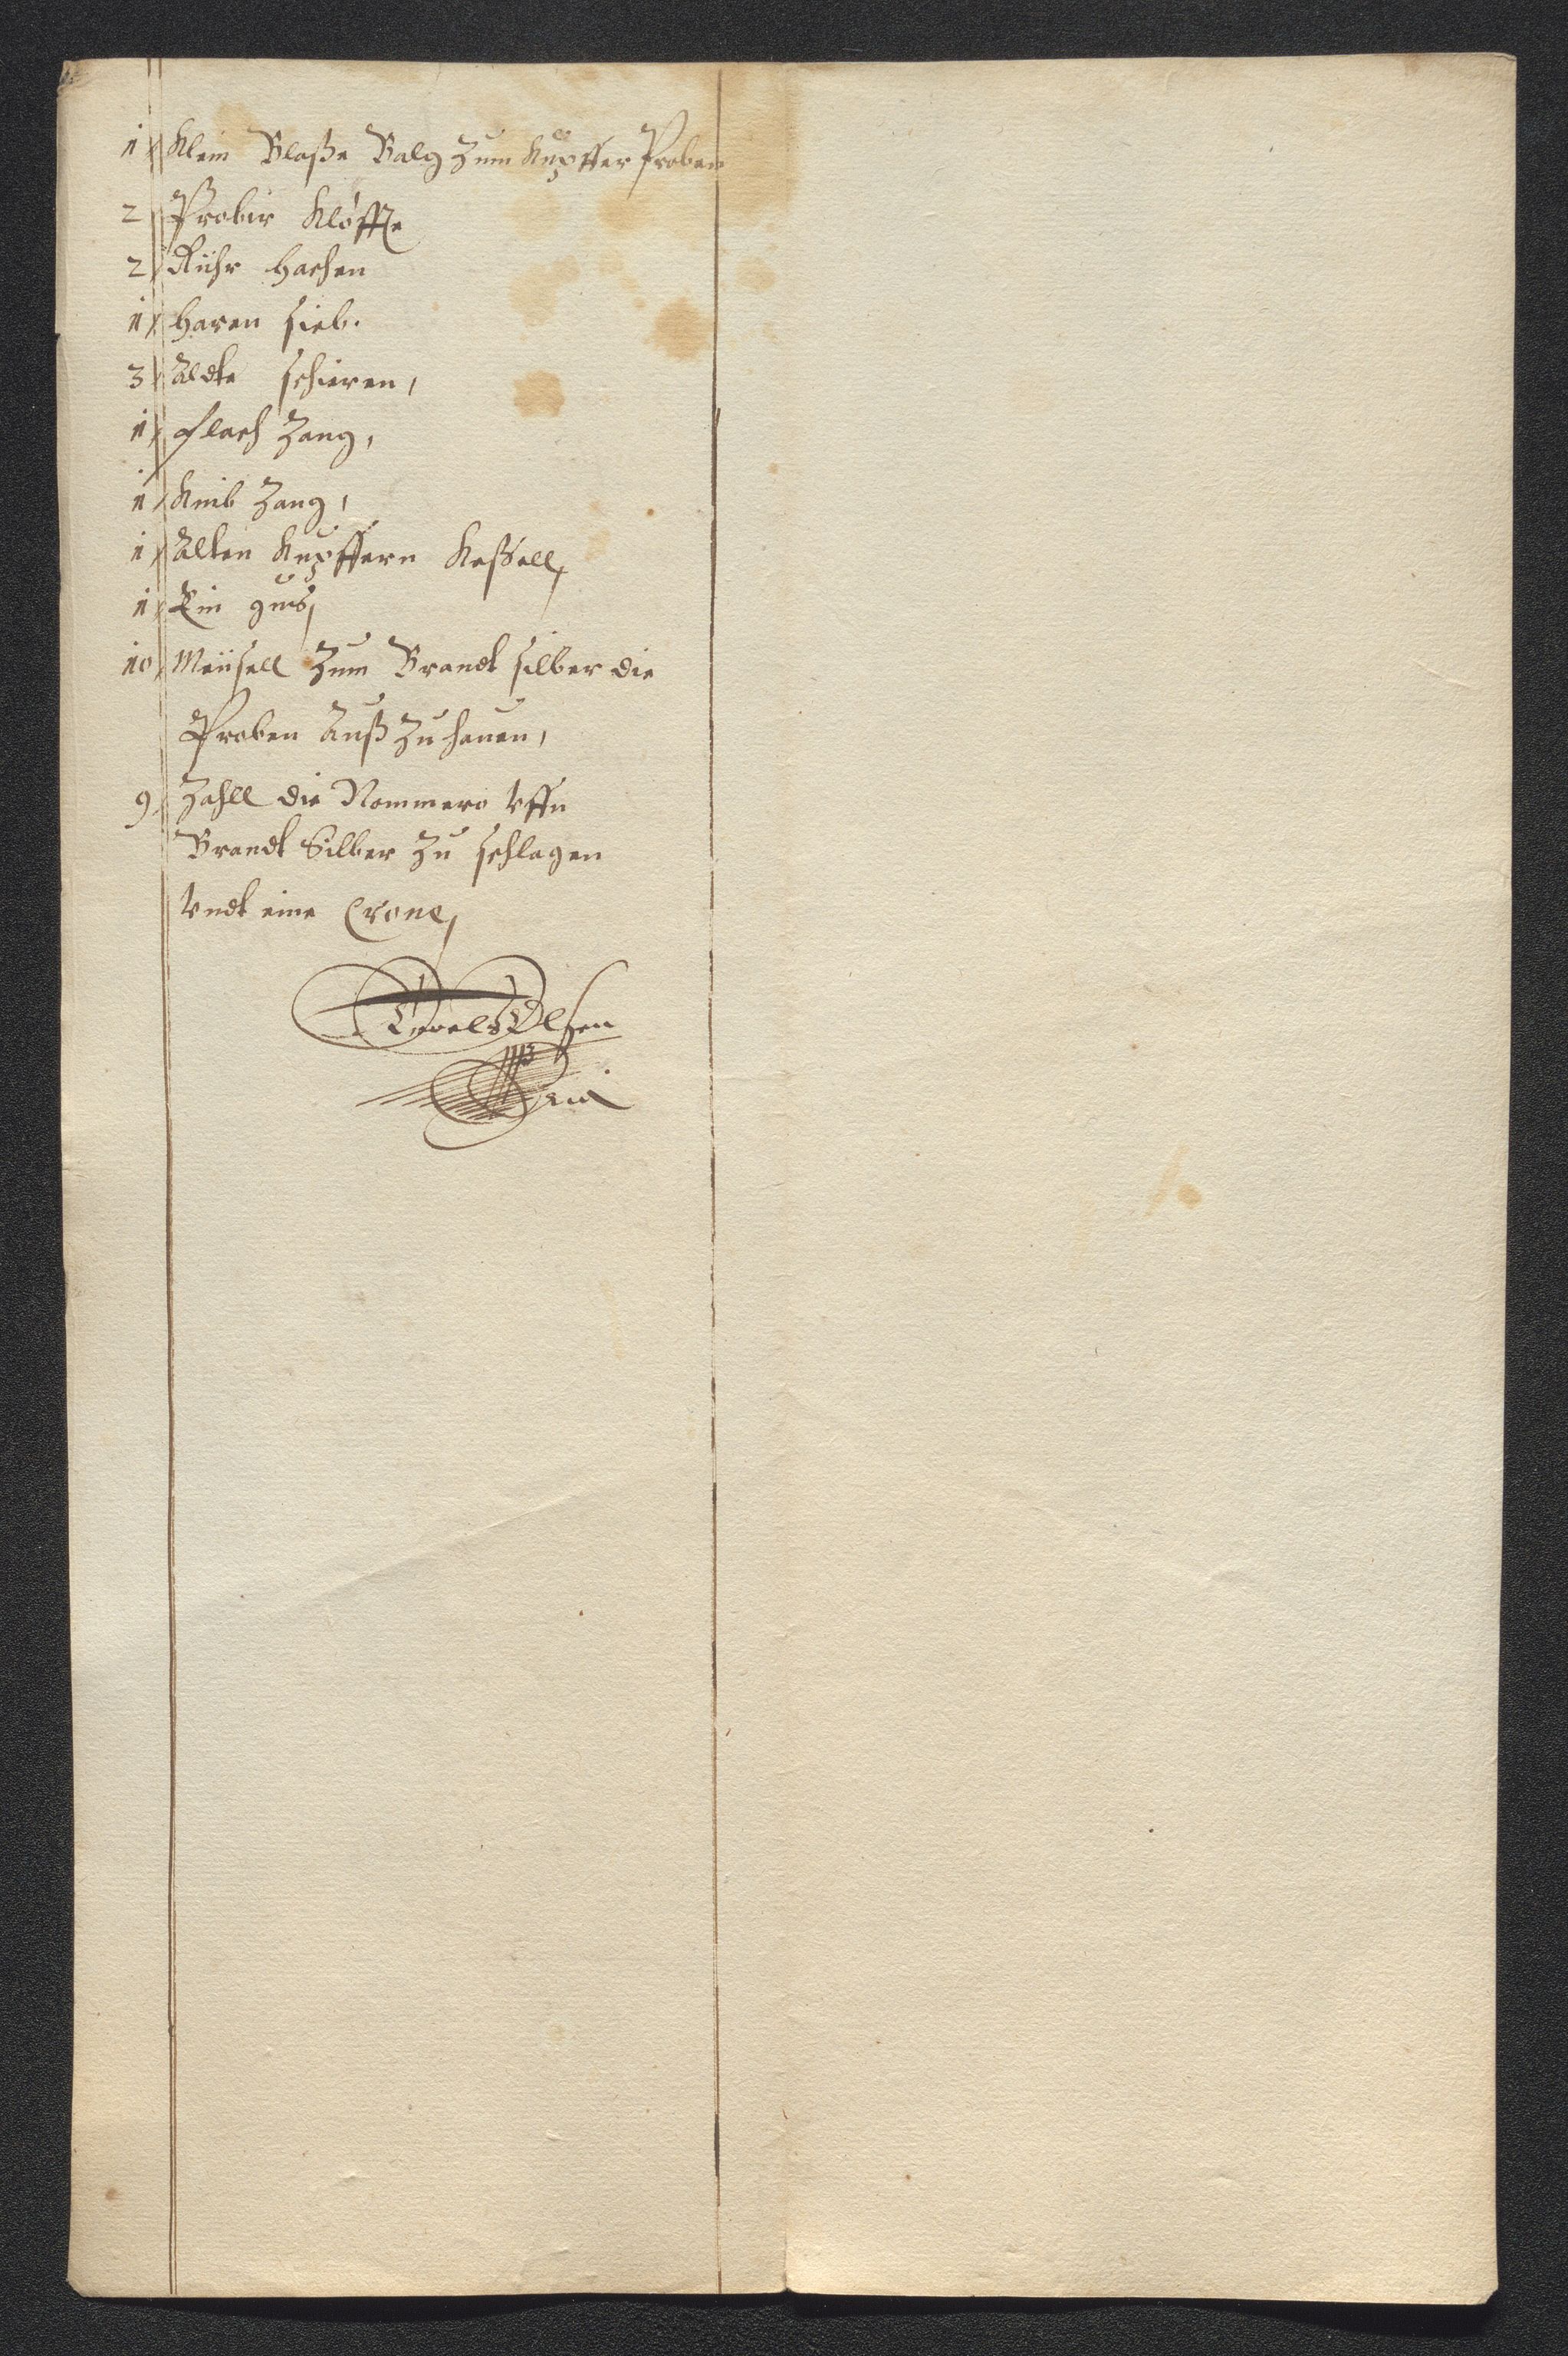 1 Klein Blaße Balg zum Kupffer Proben
2 Probir Klöffte
2 Rühr hachen
1 haren sieb.
3 Aldte schieren,
1 flach Zang,
1 Knib Zang,
1 Alten Kupffern Keßell,
1 Ein gus,
10 Meüsell zum Brandt silber die
Proben auß zu hauen,
9 Zahll die Nommero vffn
Brandt Silber zu schlagen
vndt eine Crone,
Olsen